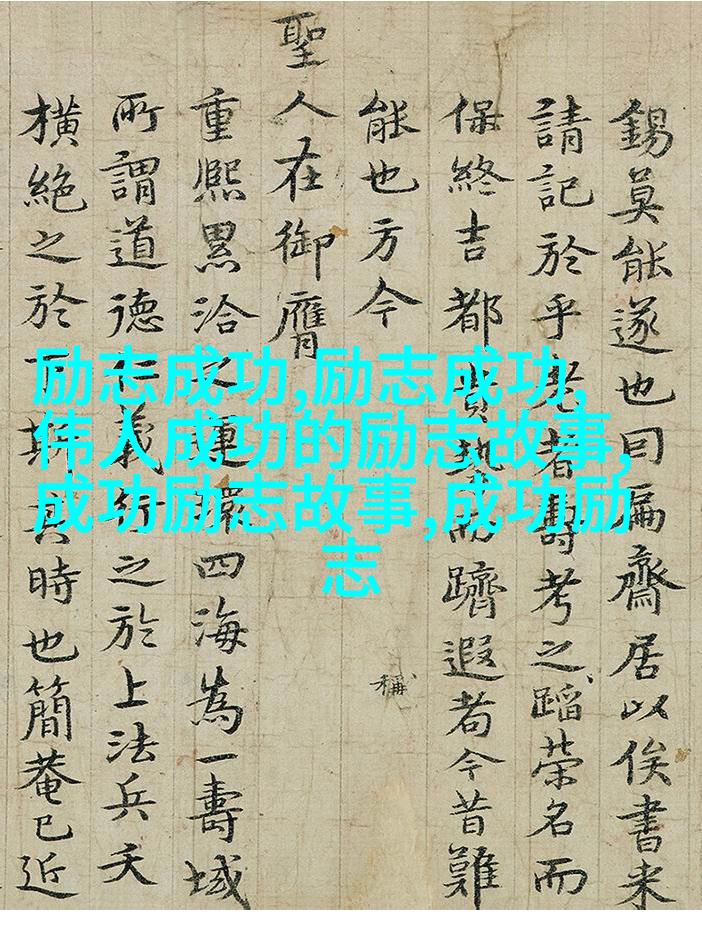 錫莫能遂也曰扁齋居以俟書来
請記於乎老者壽考之蹈荣名而
保終吉都貴埶而躋遐者今昔難
能也方今
稱
聖人在御膺
重熙累洽之運躋四海為一壽域
所謂道德仁義行之於上法兵夭
横絶之於下斯其時也簡菴已近
励志成功,励志成功,
伟人成功的励志故事,
成功励志故事,成功励
志